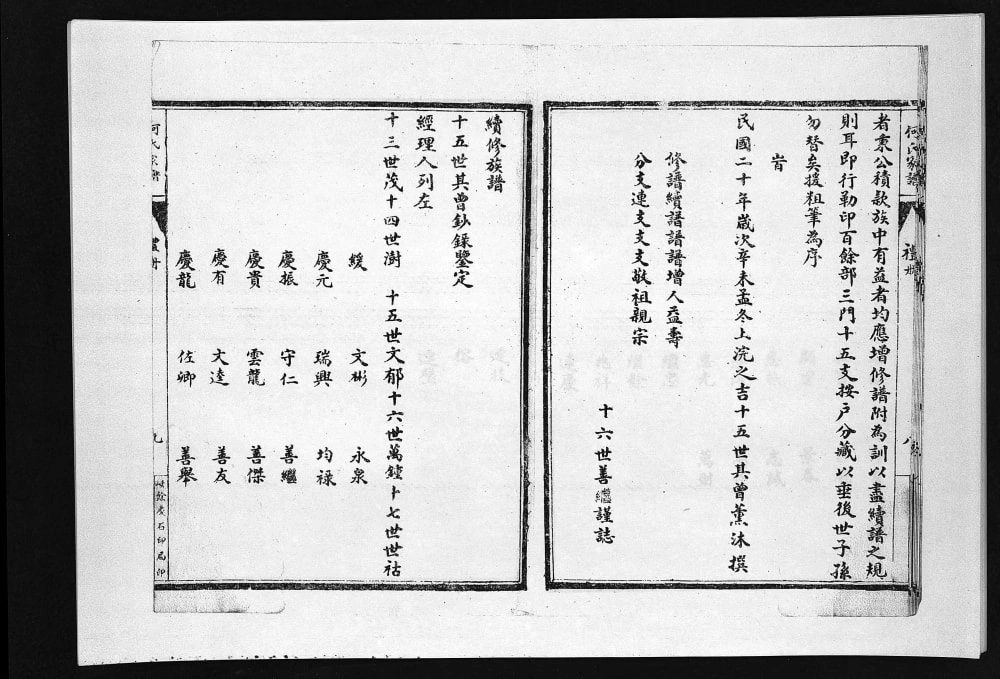 何氏家譜
禮册
者秉公積款族中有益者均應增修譜附為訓以盡續譜之規
則耳即行勒印百餘部三門十五支按戶分藏以垂後世子孫
勿替矣援粗筆為序
旹
民國二十年歲次辛未孟冬上浣之吉十五世其曾薰沐撰
修譜續譜譜增人益壽
分支連支支支敬祖親宗
十六世善繼謹誌
續修族譜
十五世其曾鈔錄鑒定
經理人列左
十三世茂十四世澍 十五世文郁十六世萬鍾十七世世祜
緩 文彬 永泉
慶元 瑞興 均祿
慶振 守仁 善繼
慶貴 雲龍 善傑
慶有 文逵 善友
慶龍 佐卿 善舉
何氏家譜
禮册
九
餘慶石印局印